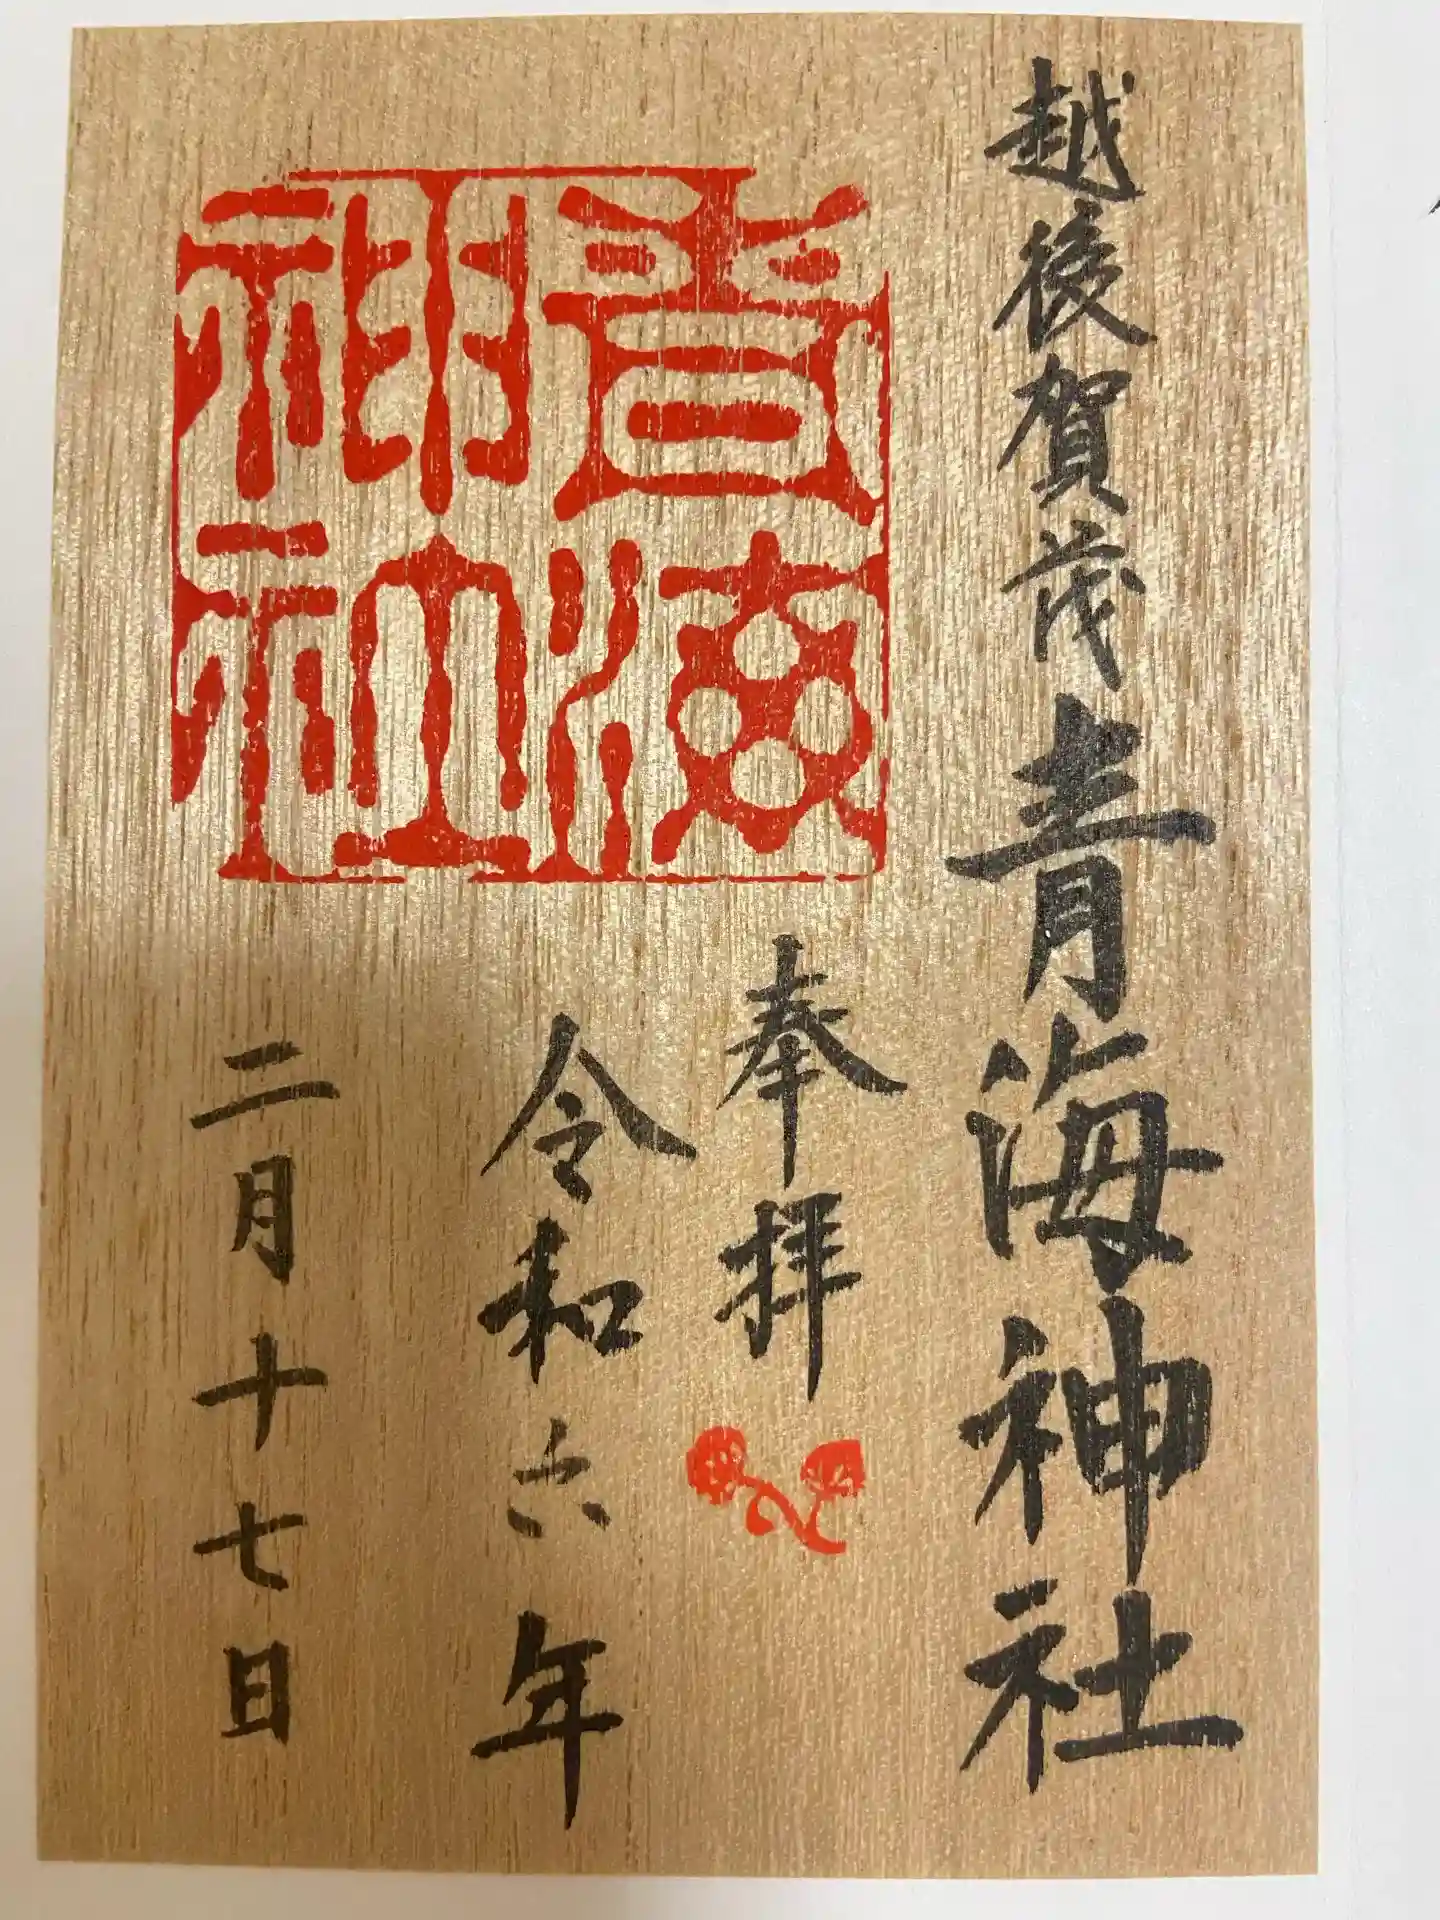 越後賀茂青海神社
奉拝
令和六年
二月十七日
青海神社